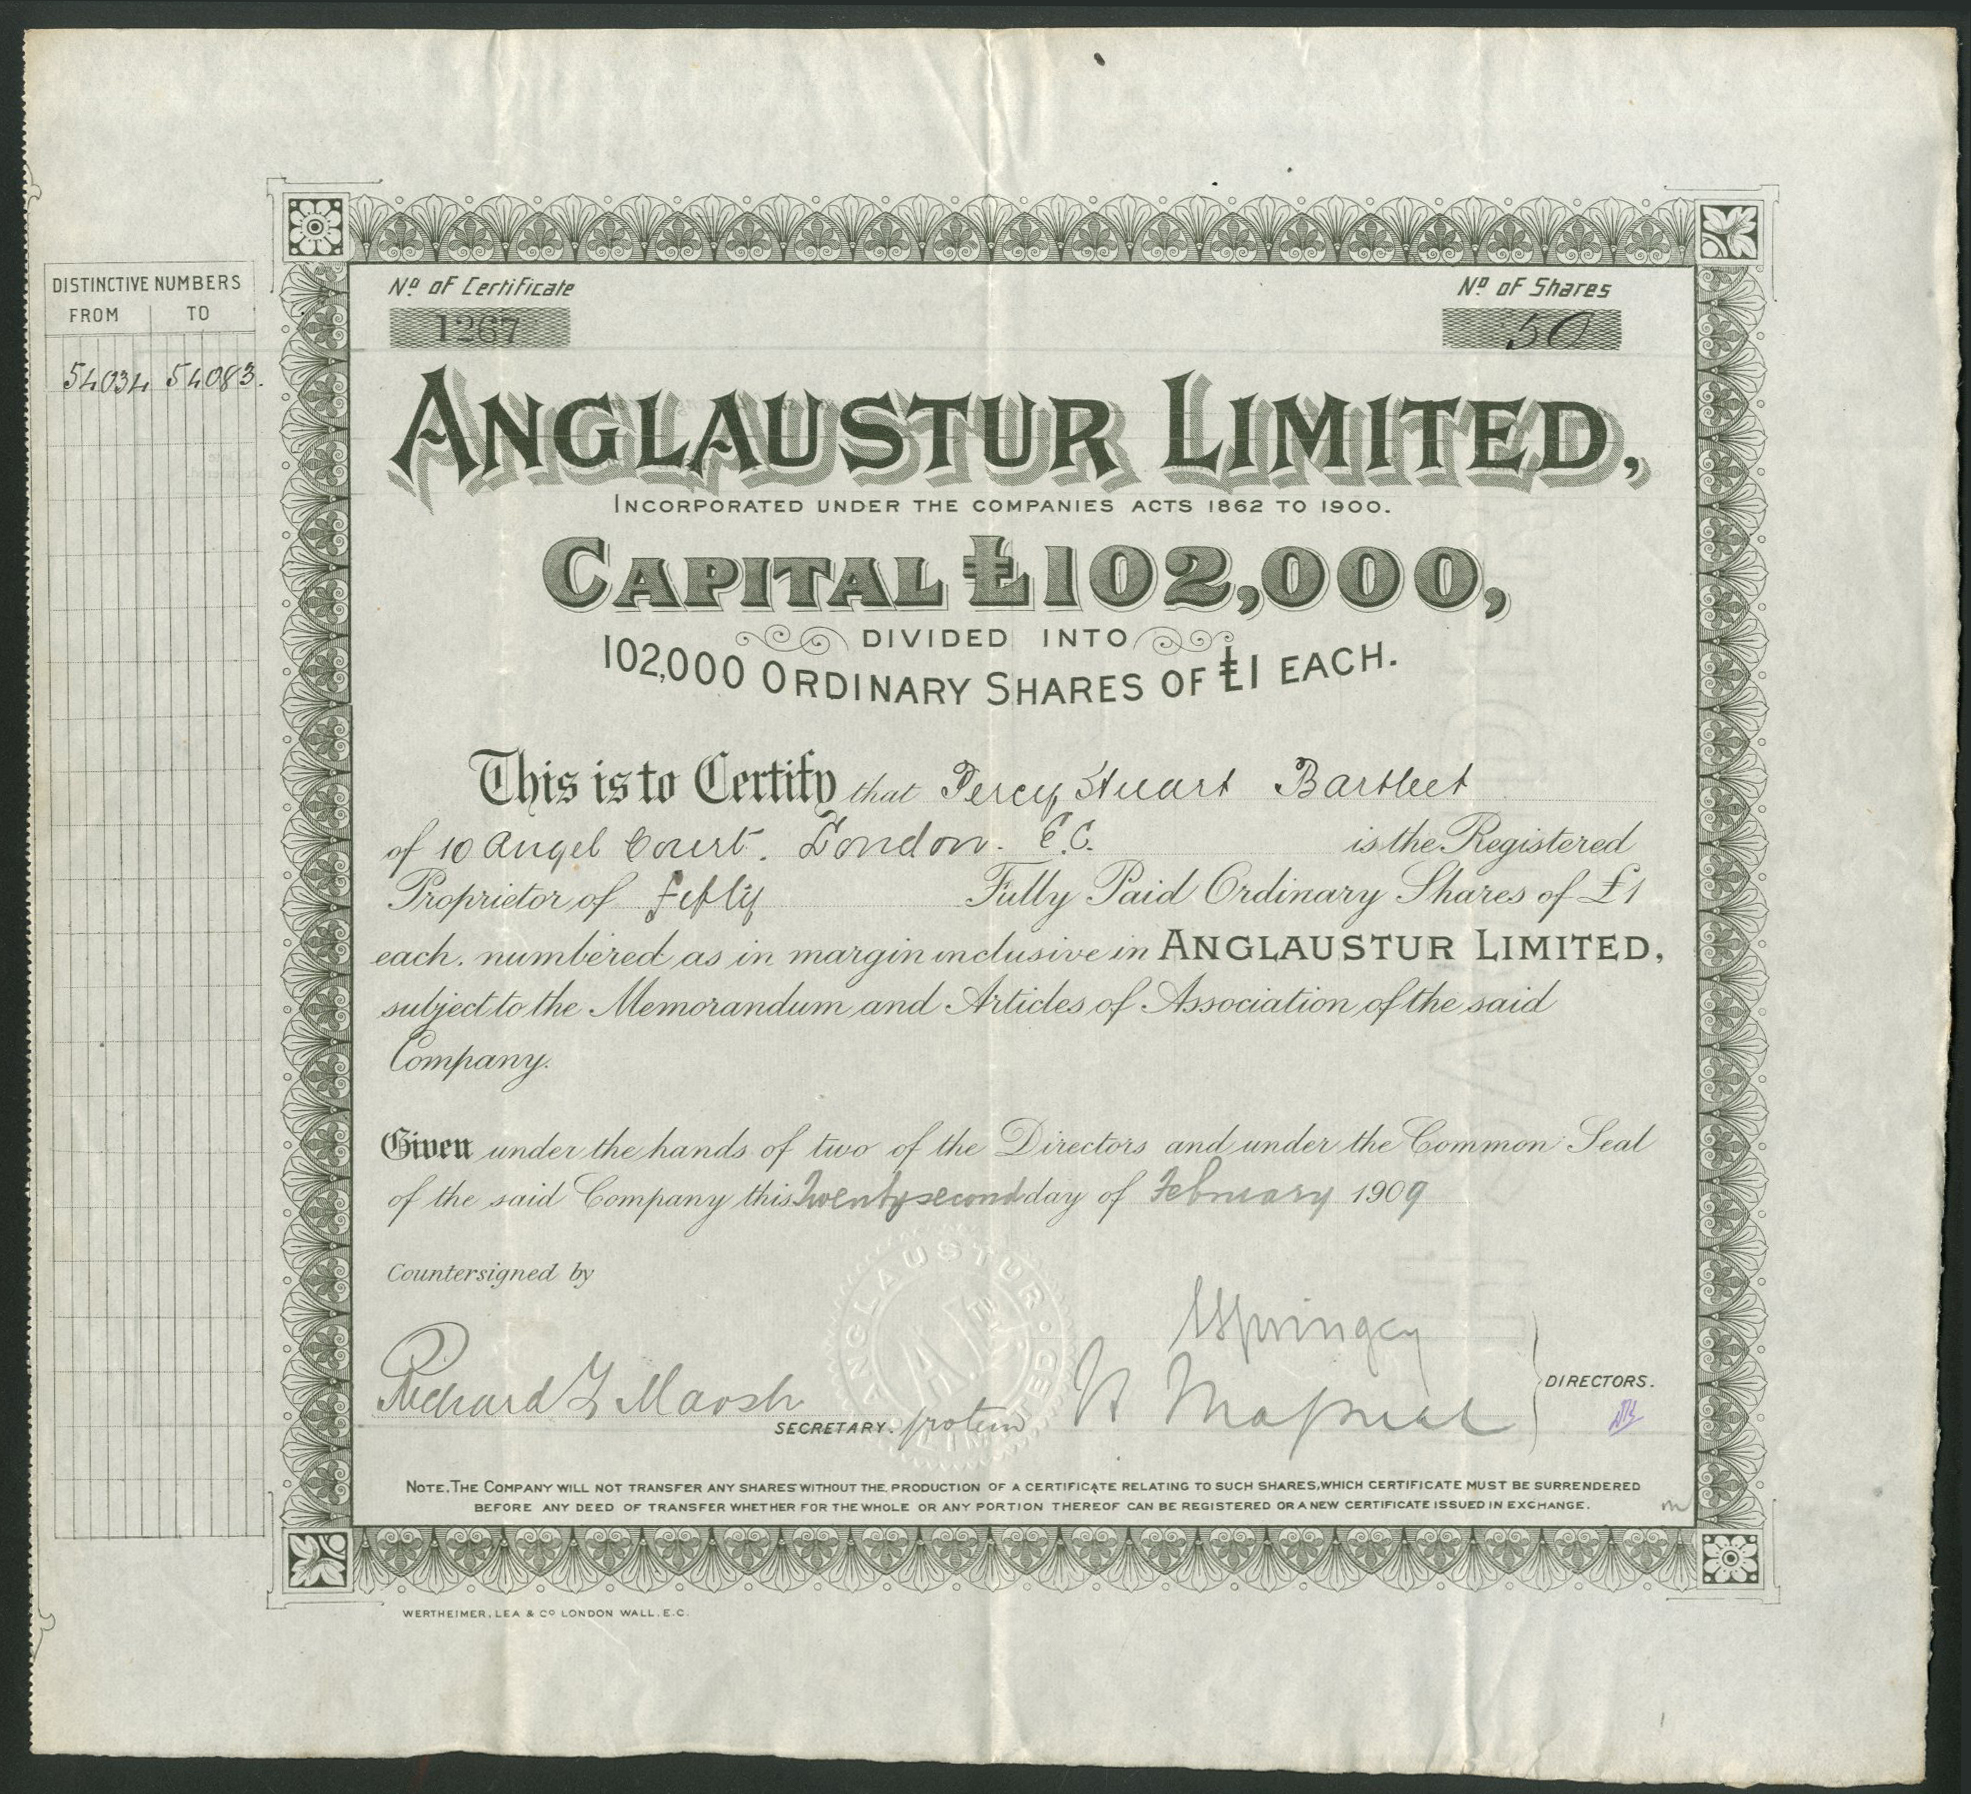 DISTINCTIVE NUMBERS
FROM TO
54034 54083.
Nº of Certificate
1267
Nº of Shares
50
ANGLAUSTUR LIMITED,
INCORPORATED UNDER THE COMPANIES ACTS 1862 TO 1900.
CAPITAL £102,000,
DIVIDED INTO
102,000 ORDINARY SHARES OF £1 EACH.
This is to Certify that Percy Stuart Bartleet
of 10 Angel Court. London. E.C. is the Registered
Proprietor of fifty Fully Paid Ordinary Shares of £1
each. numbered as in margin inclusive in ANGLAUSTUR LIMITED,
subject to the Memorandum and Articles of Association of the said
Company.
Given under the hands of two of the Directors and under the Common Seal
of the said Company this Twenty second day of February 1909
Countersigned by
ANGLAUSTUR LIMITED
Richard Marsh
SECRETARY. protem
DIRECTORS.
NOTE. THE COMPANY WILL NOT TRANSFER ANY SHARES WITHOUT THE PRODUCTION OF A CERTIFICATE RELATING TO SUCH SHARES, WHICH CERTIFICATE MUST BE SURRENDERED
BEFORE ANY DEED OF TRANSFER WHETHER FOR THE WHOLE OR ANY PORTION THEREOF CAN BE REGISTERED OR A NEW CERTIFICATE ISSUED IN EXCHANGE.
WERTHEIMER, LEA & Cº LONDON WALL. E.C.